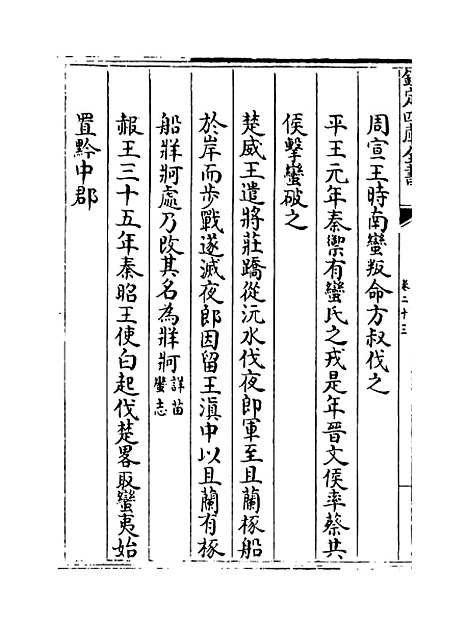 欽定四庫全書
卷二十三
周宣王時南蠻叛命方叔伐之
平王元年秦禦有蠻氏之戎是年晉文侯率蔡共
侯擊蠻破之
楚威王遣將莊蹻從沅水伐夜郎軍至且蘭椓船
於岸而步戰遂滅夜郎因留王滇中以且蘭有椓
船牂牁處乃改其名為牂牁詳苗蠻志
赧王三十五年秦昭王使白起伐楚畧取蠻夷始
置黔中郡